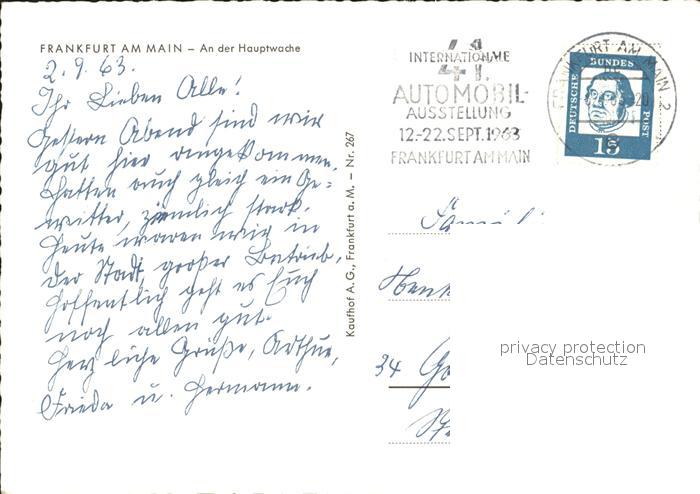 FRANKFURT AM MAIN – An der Hauptwache
2.9.63.
Ihr Lieben Alle!
Gestern Abend sind wir
gut hier angekommen.
hatten auch gleich ein Ge=
witter, ziemlich stark.
Heute waren wir in
der Stadt, großer Betrieb.
Hoffentlich geht es Euch
noch allen gut.
Herzliche Grüße, Arthur,
Frieda u. Hermann.
Kaufhof A.G., Frankfurt a. M. – Nr. 267
INTERNATIONALE
41.
AUTOMOBIL-
AUSSTELLUNG
12-22.SEPT.1963
FRANKFURT AM MAIN
FRANKFURT AM MAIN 2
DEUTSCHE BUNDESPOST
15
Familie
34
privacy protection
Datenschutz